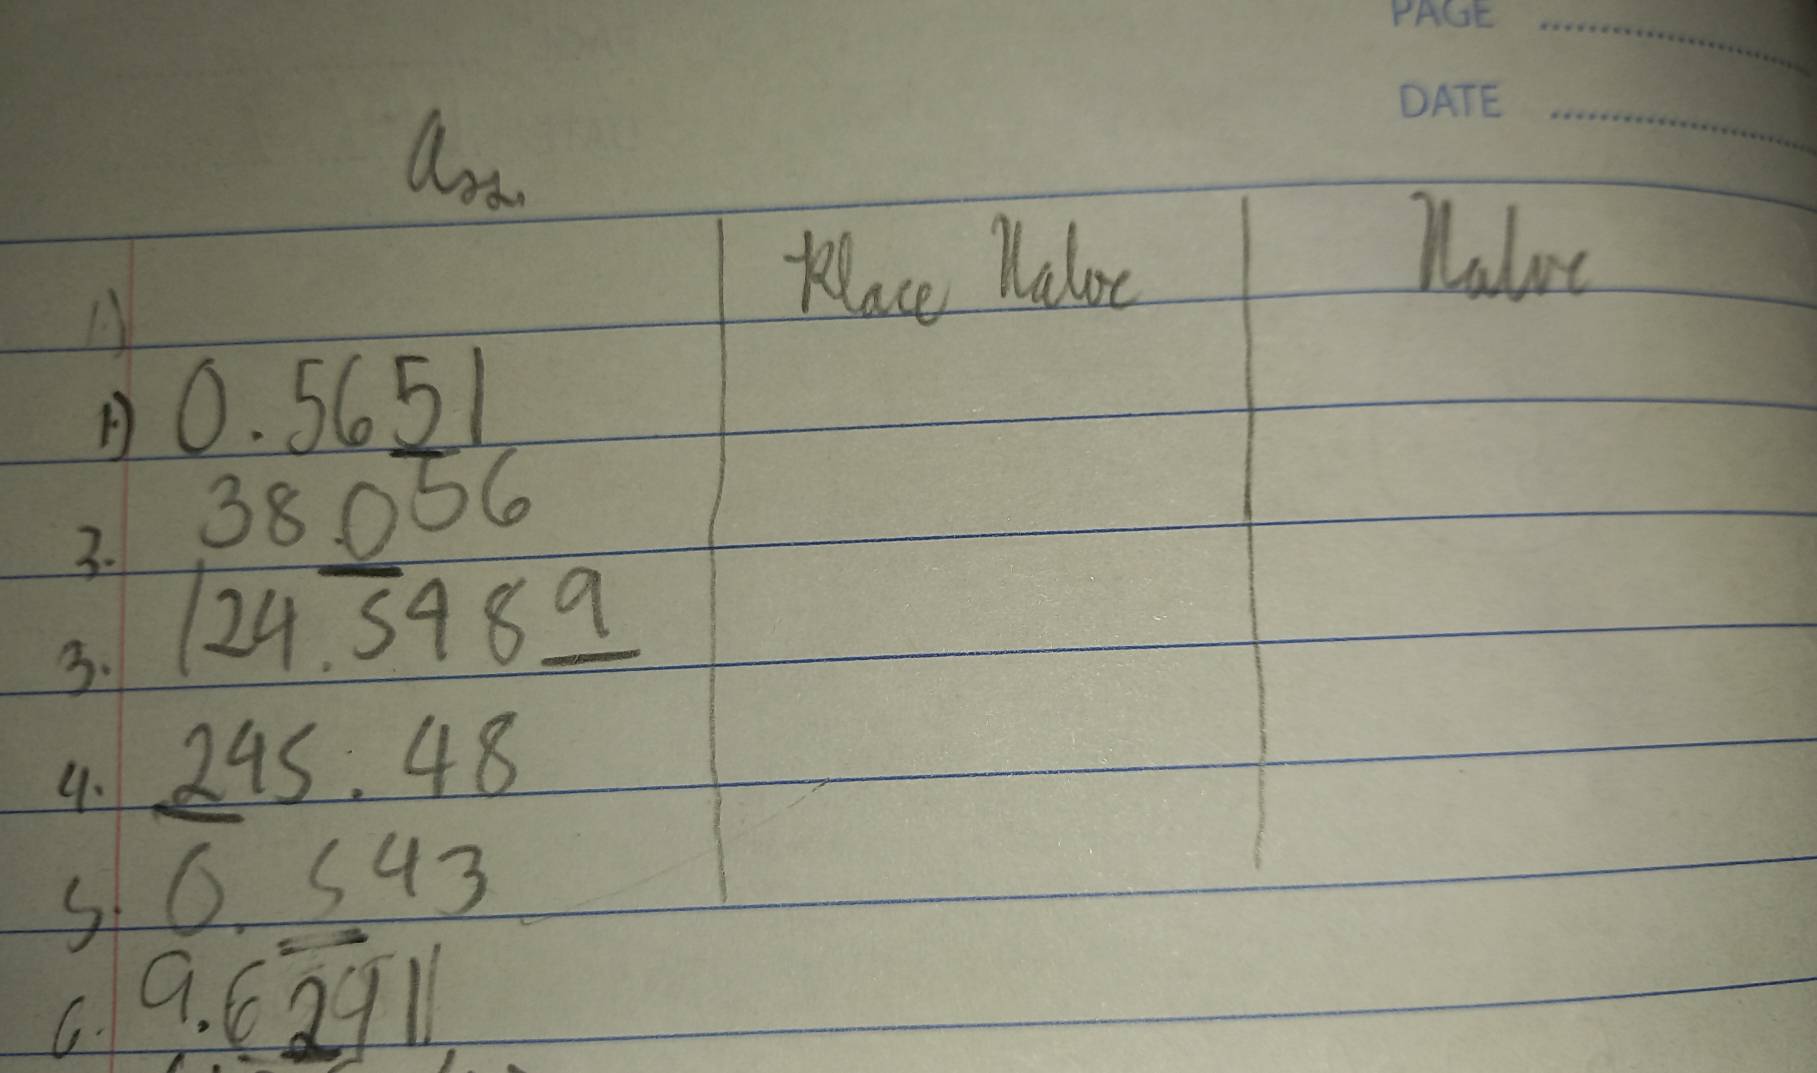 PAGE
DATE
Ass.
1) Place Value Value
1) 0.5651
2. 38.056
3. 124.5989
4. 245.48
5. 0.543
6. 9.62911